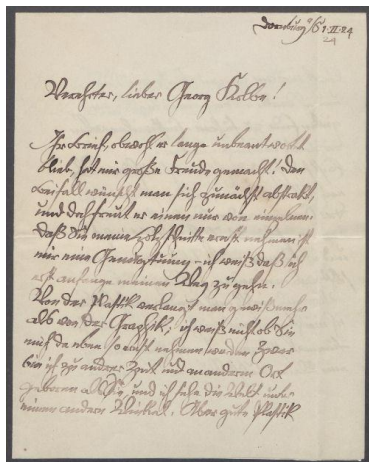 Dornburg a/S 1·II·24
24
Verehrter, lieber Georg Kolbe!
Ihr Brief, obwohl er lange unbeantwortet
blieb, hat mir große Freude gemacht! Den
Beifall wünscht man sich zunächst abstrakt,
und doch freut er einen nur von einzelnen.
Daß Sie meine Holzschnitte ernst nehmen ist
mir eine Genugtuung – ich weiß daß ich
erst anfange meinen Weg zu gehn.
Von der Plastik verlangt man gewiß mehr
als von der Graphik, ich weiß nicht ob Sie
mich da eben so ernst nehmen werden. Zwar
bin ich zu andrer Zeit und an anderem Ort
geboren als Sie, und ich sehe die Welt unter
einem andern Winkel. Aber gute Plastik